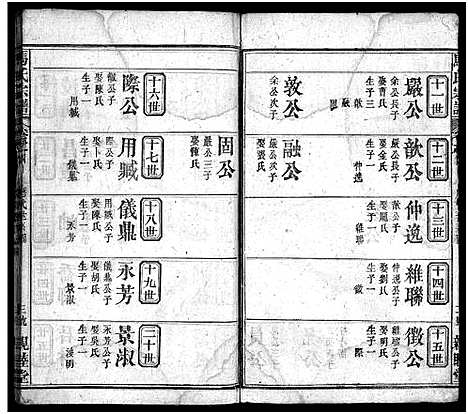 十一世
嚴公
余公長子
娶曹氏
生子一
嚴
敦公
余公次子
娶陳氏
十二世
歆公
嚴公長子
娶金氏
生子一
仲逸
融公
嚴公次子
娶張氏
固公
嚴公三子
娶鍾氏
十三世
仲逸
歆公子
生子一
維聯
十四世
維聯
仲逸公子
娶劉氏
生子一
徵
十五世
徵公
維聯公子
生子一
際
十六世
際公
徵公子
娶陳氏
生子一
用臧
十七世
用臧
際公子
娶卜氏
生子一
儀鼎
十八世
儀鼎
用臧公子
娶陳氏
生子一
永芳
十九世
永芳
儀鼎公子
娶胡氏
生子一
景淑
二十世
景淑
永芳公子
娶吳氏
生子一
親睦堂